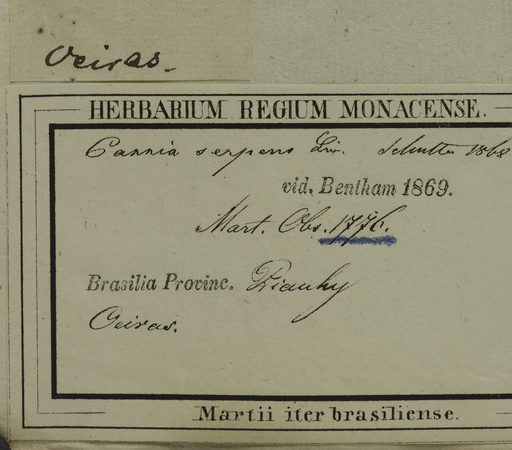 Oeiras.
HERBARIUM REGIUM MONACENSE.
Cassia serpens Lin. 1868
vid. Bentham 1869.
Mart. Obs. 1776.
Brasilia Provinc. Piauhy
Oeiras.
Martii iter brasiliense.